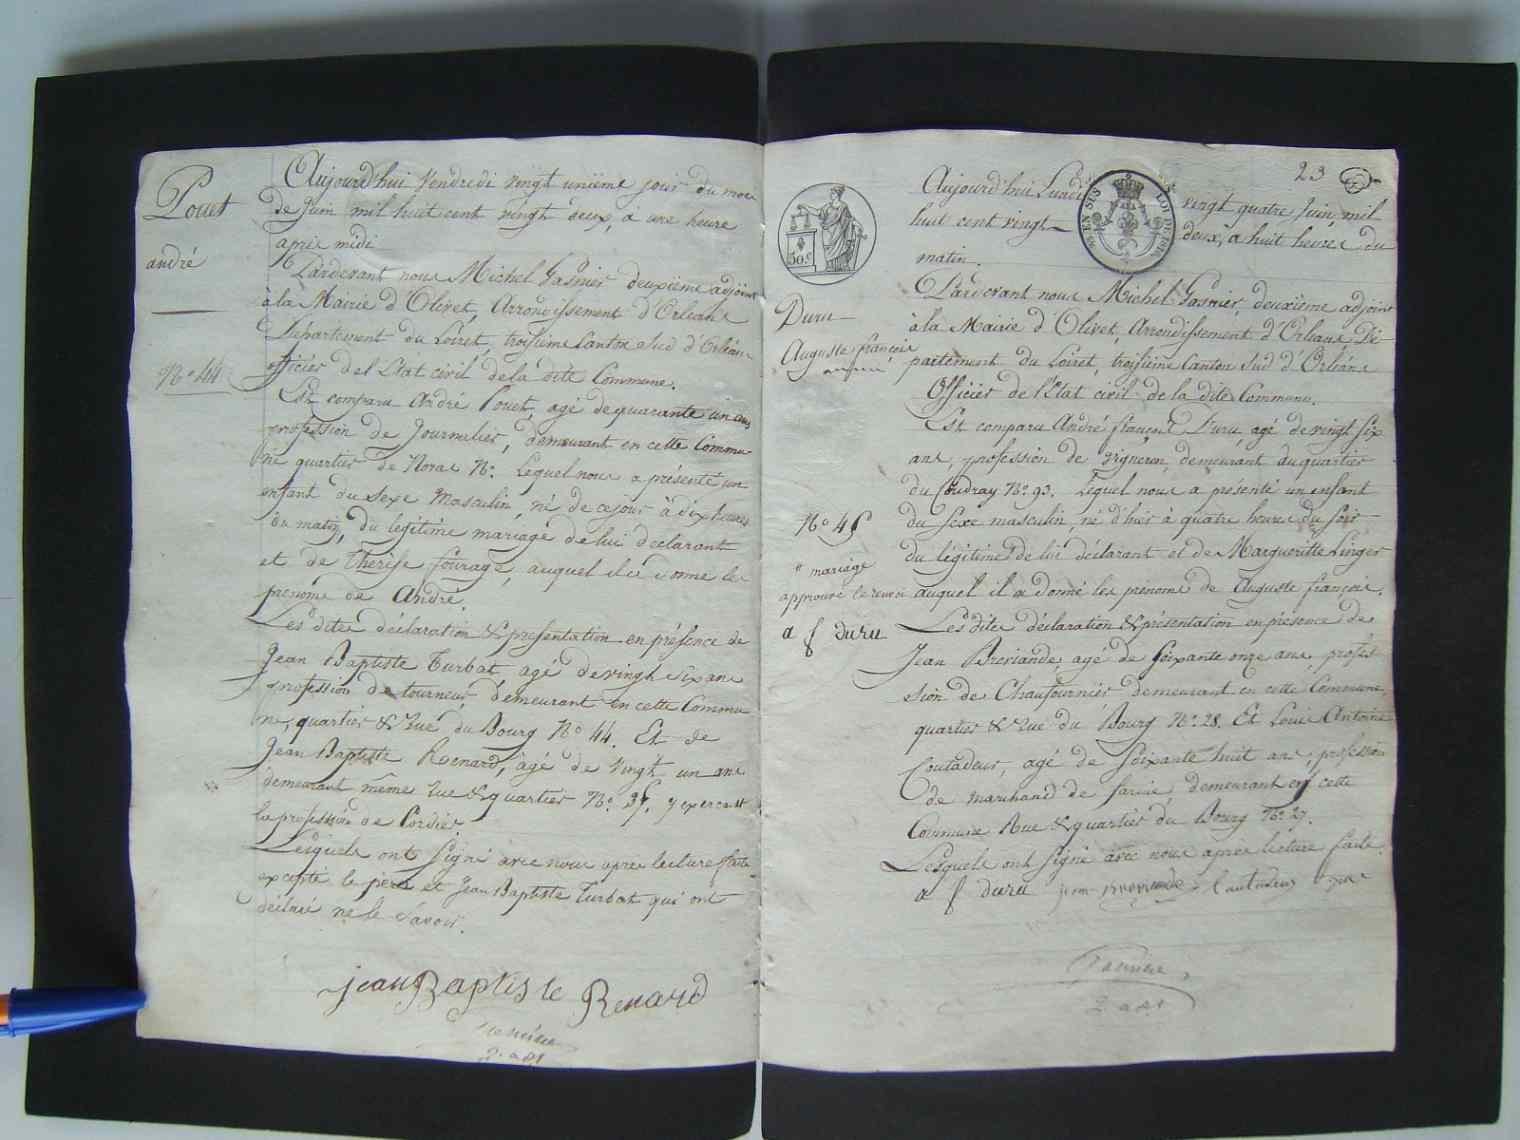 Pouet
andré
N.o 44
Aujourd'hui Vendredi vingt unième jour du mois
de Juin mil huit cent vingt deux, à une heure
après midi
Pardevant nous Michel Gasnier deuxième adjoint
à la Mairie d'Olivet, Arrondissement d'Orléans
Département du Loiret, troisième Canton Sud d'Orléans
officier de l'Etat civil de la dite Commune.
Est comparu André Pouet, agé de quarante un ans
profession de Journalier, demeurant en cette Commu-
ne quartier de Noras N.o Lequel nous a présenté un
enfant du Sexe Masculin, né de ce jour à dix heures
du matin, du légitime mariage de lui déclarant
et de Thérèse fourage, auquel il a donné les
prénoms de André.
Les dites déclaration & présentation en présence de
Jean Baptiste Turbat, agé de vingt six ans
profession de tourneur, demeurant en cette Commu-
ne, quartier & Rue du Bourg N.o 44. Et de
Jean Baptiste Renard, agé de vingt un ans
demeurant même rue & quartier N.o 37, y exercant
la profession de Cordier.
Lesquels ont Signé avec nous après lecture faite
excepté le père et Jean Baptiste Turbat qui ont
déclaré ne le Savoir.
jean Baptiste Renard
2.e adj.t
23
50.c
EN SUS
LOI DE 1816
Duru
Auguste françois
N.o 45
" mariage
approuvé le renvoi
a f duru
Aujourd'hui Lundi vingt quatre Juin, mil
huit cent vingt deux, a huit heures du
matin.
Pardevant nous Michel Gasnier, deuxième adjoint
à la Mairie d'Olivet, Arrondissement d'Orléans, Dé-
partement du Loiret, troisième Canton Sud d'Orléans
Officier de l'Etat civil de la dite Commune.
Est comparu André françois Duru, agé de vingt six
ans, profession de vigneron, demeurant au quartier
du Coudray N.o 93. Lequel nous a présenté un enfant
du Sexe masculin, né d'hier à quatre heures du Soir
du légitime " de lui déclarant et de Margueritte Linger
auquel il a donné les prénoms de Auguste françois.
Les dites déclaration & présentation en présence de
Jean Breviande, agé de Soixante onze ans, profes-
sion de Chaufournier demeurant en cette Commune,
quartier & Rue du Bourg N.o 28. Et Louis Antoine
Coutadeur, agé de Soixante huit ans, profession
de marchand de farine demeurant en cette
Commune Rue & quartier du Bourg N.o 27.
Lesquels ont Signé avec nous après lecture faite.
a f duru jean Breviande
2 adj.t